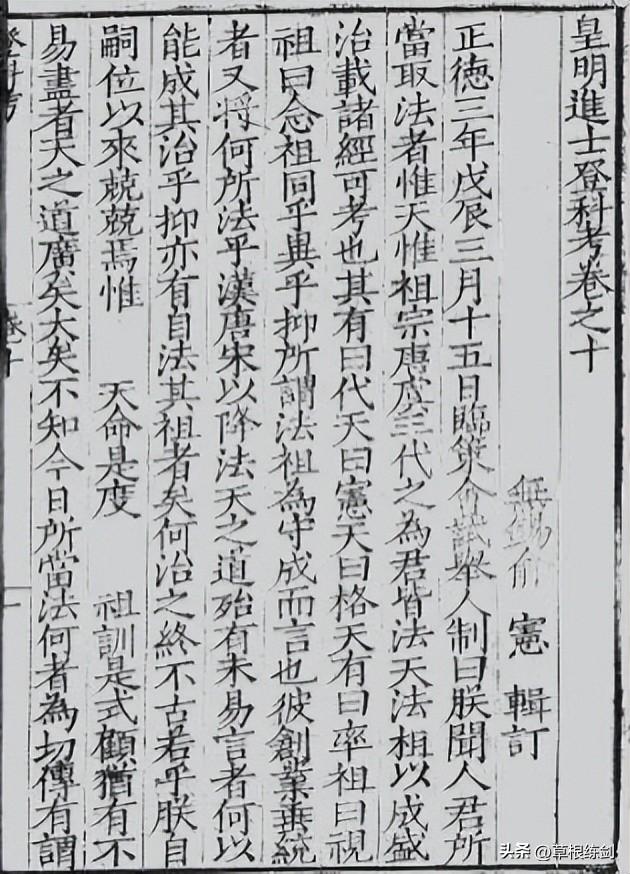 皇明進士登科考卷之十
無錫俞憲輯訂
正德三年戊辰三月十五日臨策會試舉人制曰朕聞人君所
當取法者惟天惟祖宗唐虞三代之為君皆法天法祖以成盛
治載諸經可考也其有曰代天曰憲天曰格天有曰率祖曰視
祖曰念祖同乎異乎抑所謂法祖為守成而言也彼創業垂統
者又將何所法乎漢唐宋以降法天之道殆有未易言者何以
能成其治乎抑亦有自法其祖者矣何治之終不古若乎朕自
嗣位以來兢兢焉惟 天命是度 祖訓是式顧猶有不
易盡者天之道廣矣大矣不知今日所當法何者為切傳有謂
登科考 卷十 一
头条 @草根练剑